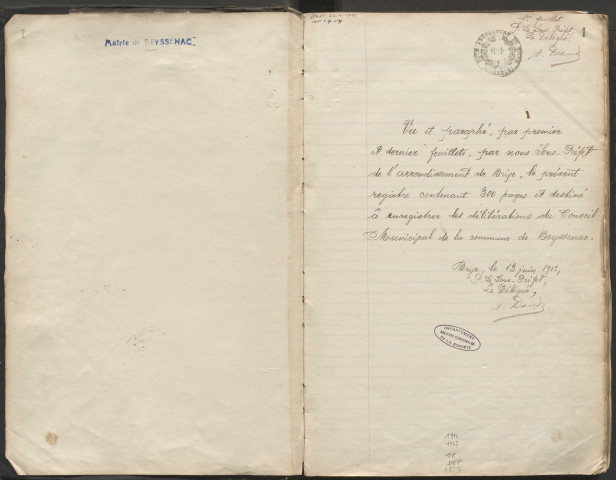 Mairie de BEYSSENAC
1er feuillet
P. Le Sous-Préfet,
Le Délégué,
Vu et paraphé, par premier
et dernier feuillets, par nous Sous-Préfet
de l'arrondissement de Brive, le présent
registre contenant 300 pages et destiné
à enregistrer les délibérations du Conseil
Municipal de la commune de Beyssenac.
Brive, le 13 juin 1912,
P. Le Sous-Préfet,
Le Délégué,
DEPARTEMENT
ARCHIVES COMMUNALES
DE LA CORREZE
1912